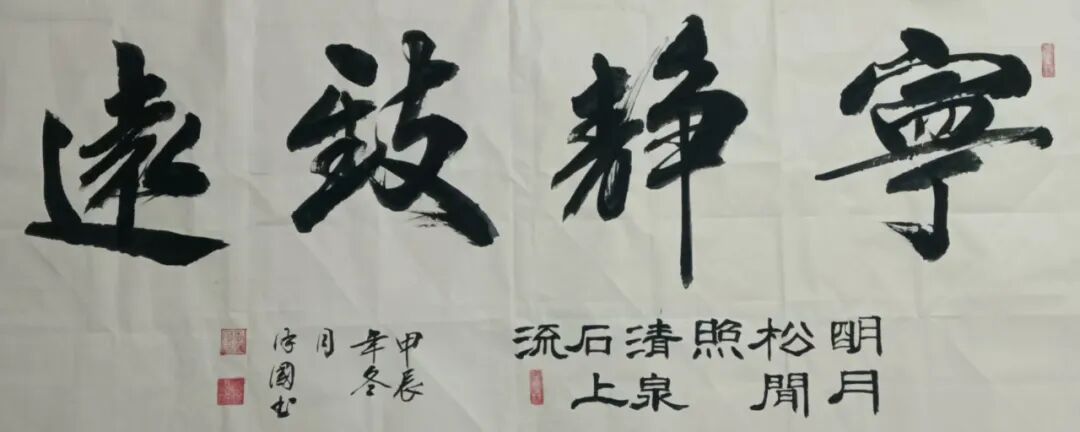 寧靜致遠
明月
松間
照
清泉
石上
流
甲辰
年冬
月
國书